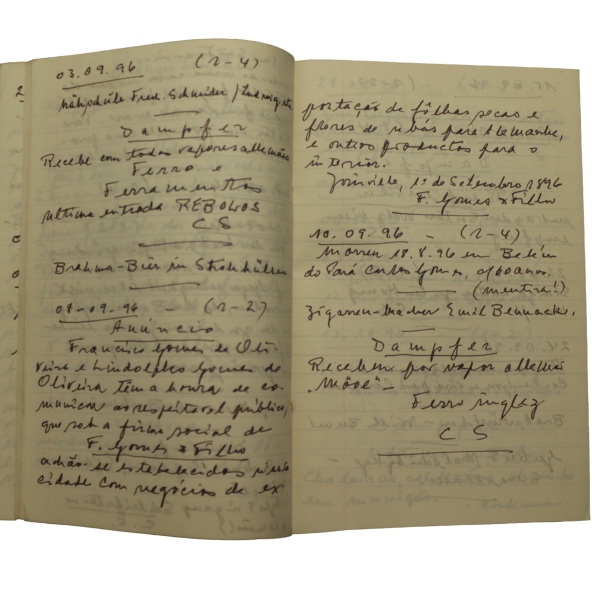 03.09.96 (2-4)
Nähschule Fried. Schneider / Ludwigstr.
Dampfer
Recebe com todos vapores allemães
Ferro e
Ferramentas
ultima entrada REBOLOS
C S
Brahma-Bier in Strohhülsen
08-09.96 - (2-2)
Anúncio
Francisco Gomes de Oli-
veira e Lindolpho Gomes de
Oliveira têm a honra de co-
municar ao respeitavel público,
que sob a firma social de
F. Gomes & Filho
achão-se estabelecidos n'esta
cidade com negócios de ex-
portação de fôlhas secas e
flores de ubás para Allemanha,
e outros productos para o
interior.
Joinville, 1º de Setembro 1896
F. Gomes & Filho
10.09.96 - (2-4)
Morreu 18.8.96 em Belém
do Pará Carlos Gomes, a/60 anos.
(mentira!)
Zigarren-macher Emil Bennack.
Dampfer
Recebem por vapor allemão
"Möve" -
Ferro inglez
C S